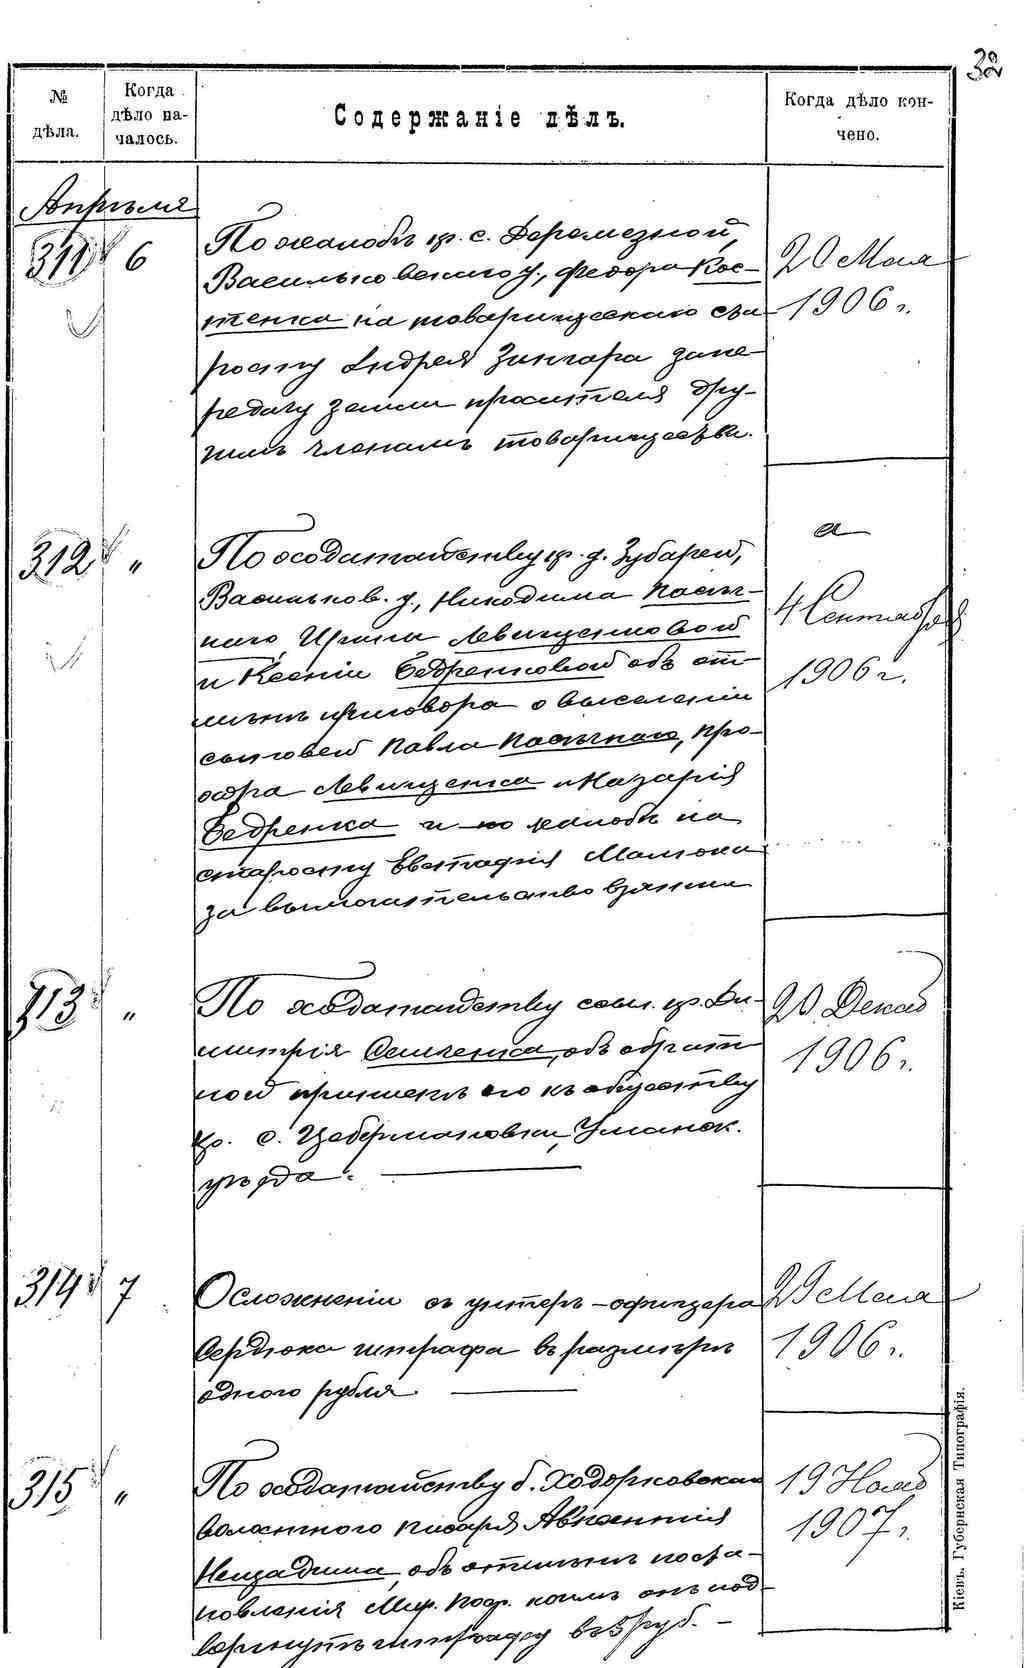 32
№ дѣла.
Когда дѣло началось.
Содержаніе дѣлъ.
Когда дѣло кончено.
Апрѣля
311 6
По жалобѣ кр. с. Деремезной,
Васильковскаго у., Федора Кос-
тенка на товарищескаго ста-
росту Андрея Зинчара за пе-
редачу земли просителя дру-
гимъ членамъ товарищества.
20 Мая
1906 г.
312 "
По ходатайству кр. д. Зубарей,
Васильков. у., Никодима Пасѣч-
наго, Ирины Левищенковой
и Ксеніи Бедренковой объ от-
мѣнѣ приговора о выселеніи
сыновей Павла Пасѣчнаго, Про-
хора Левищенка и Назарія
Бедренка и по жалобѣ на
старосту Евстафія Малюка
за вымогательство взятки
4 Сентября
1906 г.
313 "
По ходатайству сын. кр. Ди-
митрія Семченка, объ обрат-
ной припискѣ его къ обществу
кр. с. Цебермановки, Уманск.
уѣзда.
20 Декаб
1906 г.
314 7
О сложеніи съ унтеръ-офицера
Сердюка штрафа въ размѣрѣ
одного рубля
29 Мая
1906 г.
315 "
По ходатайству б. Ходорковскаго
волостного писаря Авксентія
объ отмѣнѣ поста-
новленія Мир. Поср. коимъ онъ под-
вергнутъ штрафу въ 5 руб.
19 Нояб
1907 г.
Кіевъ. Губернская Типографія.